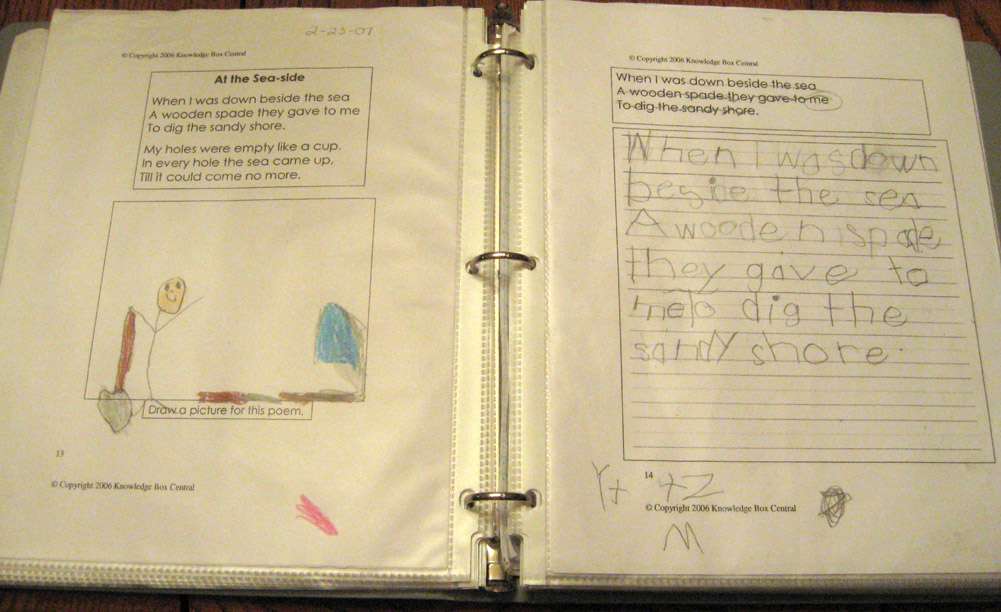 2-23-07
© Copyright 2006 Knowledge Box Central
At the Sea-side
When I was down beside the sea
A wooden spade they gave to me
To dig the sandy shore.
My holes were empty like a cup.
In every hole the sea came up,
Till it could come no more.
Draw a picture for this poem.
13
© Copyright 2006 Knowledge Box Central
© Copyright 2006 Knowledge Box Central
When I was down beside the sea
A wooden spade they gave to me
To dig the sandy shore.
When I was down
beside the sea
A wooden spade
they gave to
me to dig the
sandy shore.
14
© Copyright 2006 Knowledge Box Central
M